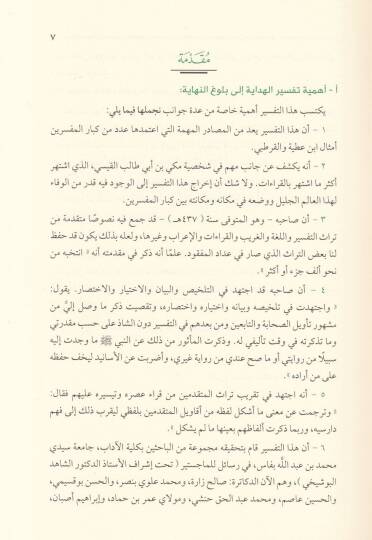 ٧
مُقَدّمَة
أ - أهمية تفسير الهداية إلى بلوغ النهاية:
يكتسب هذا التفسير أهمية خاصة من عدة جوانب نجملها فيما يلي:
١ - أن هذا التفسير يعد من المصادر المهمة التي اعتمدها عدد من كبار المفسرين
أمثال ابن عطية والقرطبي.
٢ - أنه يكشف عن جانب مهم في شخصية مكي بن أبي طالب القيسي، الذي اشتهر
أكثر ما اشتهر بالقراءات. ولا شك أن إخراج هذا التفسير إلى الوجود فيه قدر من الوفاء
لهذا العالم الجليل ووضعه في مكانه ومكانته بين كبار المفسرين.
٣ - أن صاحبه - وهو المتوفى سنة (٤٣٧هـ) - قد جمع فيه نصوصًا متقدمة من
تراث التفسير واللغة والغريب والقراءات والإعراب وغيرها، ولعله بذلك يكون قد حفظ
لنا بعض التراث الذي صار في عداد المفقود. علمًا أنه ذكر في مقدمته أنه « انتخبه من
نحو ألف جزء أو أكثر ».
٤ - أن صاحبه قد اجتهد في التلخيص والبيان والاختيار والاختصار. يقول:
« واجتهدت في تلخيصه وبيانه واختياره واختصاره، وتقصيت ذكر ما وصل إليَّ من
مشهور تأويل الصحابة والتابعين ومن بعدهم في التفسير دون الشاذ على حسب مقدرتي
وما تذكرته في وقت تأليفي له. وذكرت المأثور من ذلك عن النبي ﷺ ما وجدت إليه
سبيلًا من روايتي أو ما صح عندي من رواية غيري، وأضربت عن الأسانيد ليخف حفظه
على من أراده ».
٥ - أنه اجتهد في تقريب تراث المتقدمين من قراء عصره وتيسيره عليهم فقال:
« وترجمت عن معنى ما أشكل لفظه من أقاويل المتقدمين بلفظي ليقرب ذلك إلى فهم
دارسيه، وربما ذكرت ألفاظهم بعينها ما لم يشكل ».
٦ - أن هذا التفسير قام بتحقيقه مجموعة من الباحثين بكلية الآداب، جامعة سيدي
محمد بن عبد الله بفاس، في رسائل للماجستير ( تحت إشراف الأستاذ الدكتور الشاهد
البوشيخي )، وهم الآن الدكاترة: صالح زارة، ومحمد علوي بنصر، والحسن بوقسيمي،
والحسين عاصم، ومحمد عبد الحق حنشي، ومولاي عمر بن حماد، وإبراهيم أصبان،